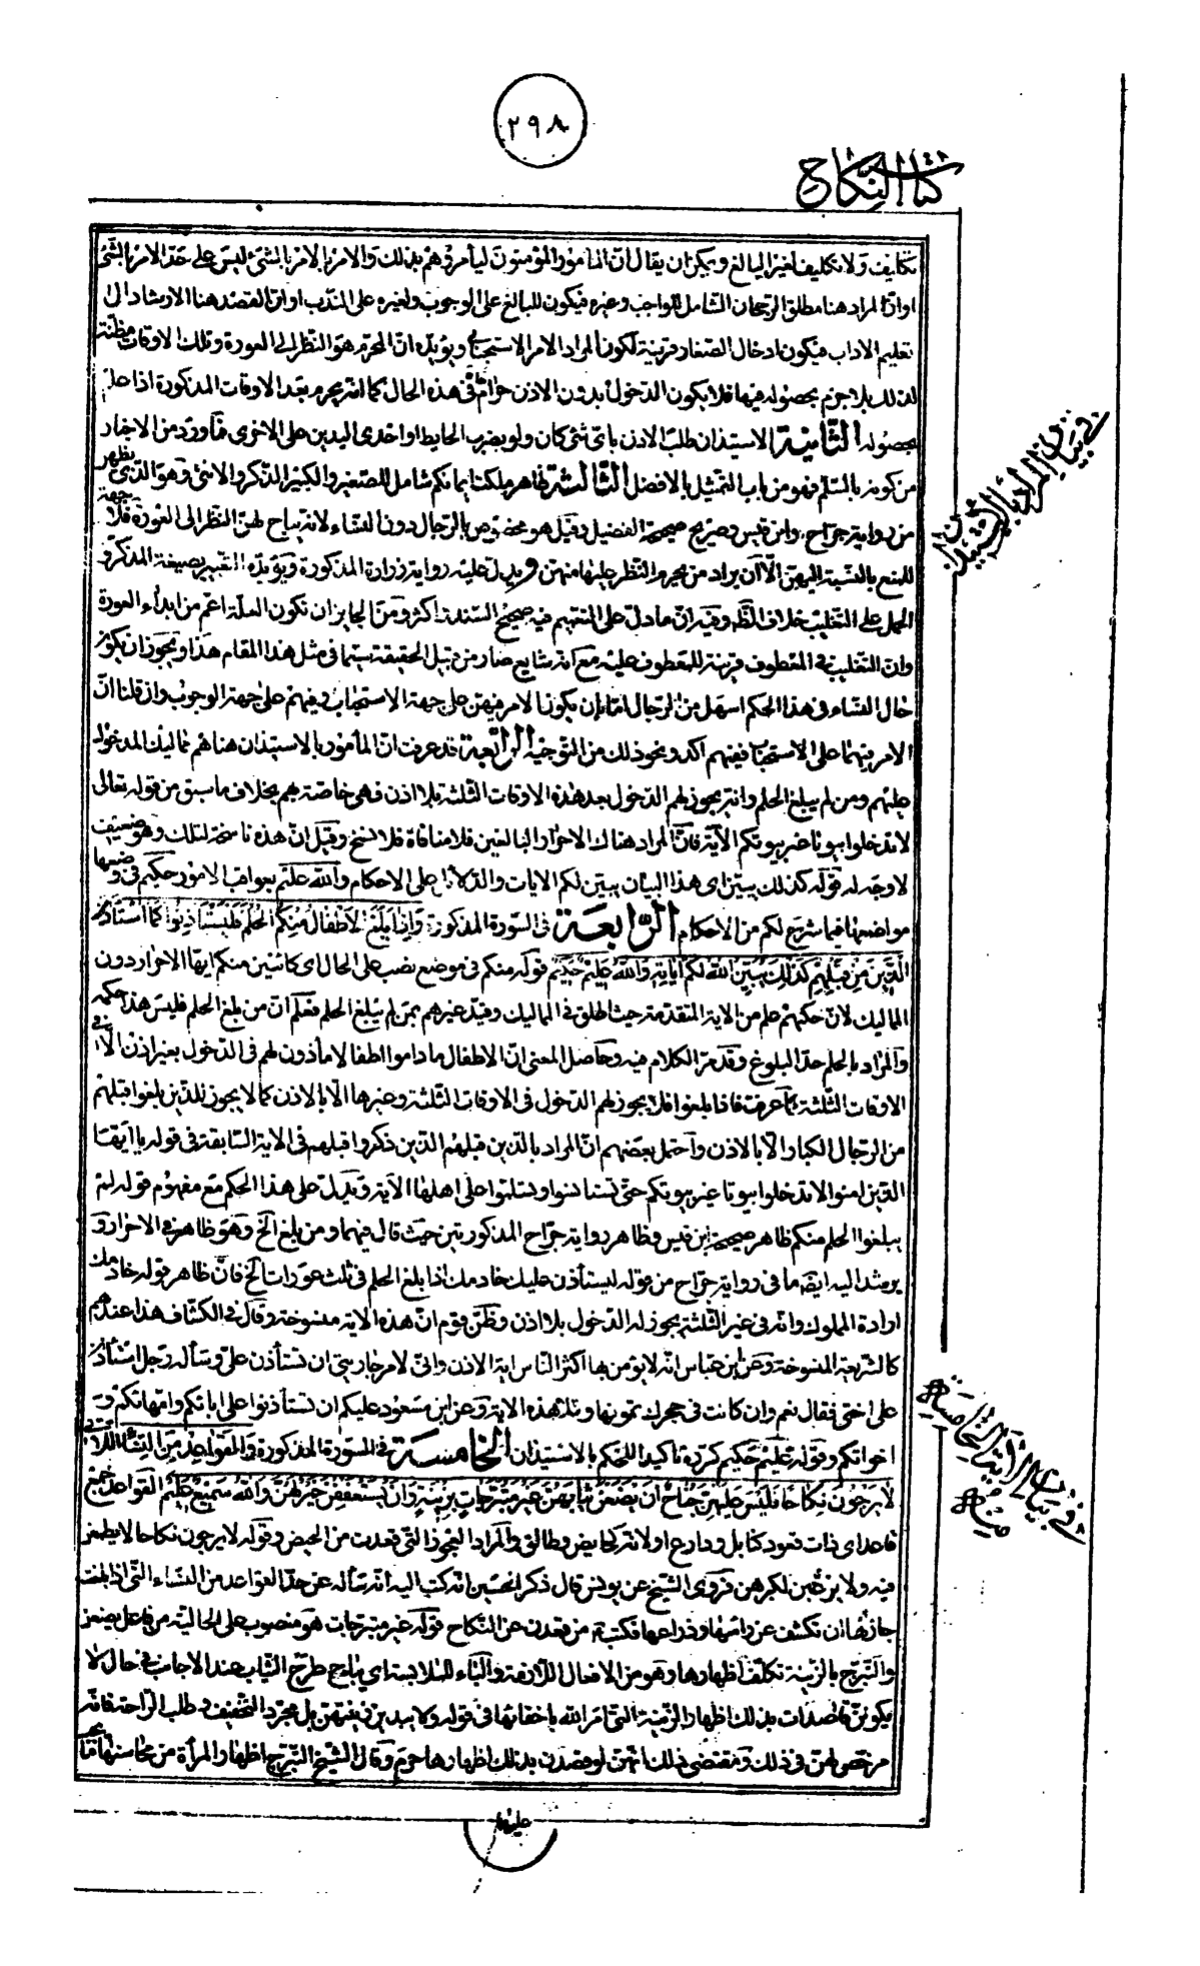 ٢٩٨
كتاب النكاح
تكليف ولا تكليف لغير البالغ ويمكن ان يقال ان المأمور المؤمنون ليأمروهم بذلك والامر بالامر بالشئ ليس على حد الامر بالشئ
او ان المراد هنا مطلق الرجحان الشامل للواجب وغيره فيكون للبالغ على الوجوب ولغيره على الندب او ان القصد هنا الارشاد الى
تعليم الاداب فيكون ادخال الصغار قرينة لكون المراد الامر الاستحبابي ويؤيده ان المحرم هو النظر الى العورة وتلك الاوقات مظنته
لذلك بلا جزم بحصوله فيها فلا يكون الدخول بدون الاذن حراما في هذه الحال كما انه يحرم بعد الاوقات المذكورة اذا علم
بحصوله الثانية الاستيذان طلب الاذن باى شئ كان ولو بضرب الحايط او احدى اليدين على الاخرى فما ورد من الاخبار
من كونه بالسلم فهو من باب التمثيل بالافضل الثالثة ظاهر ملكت ايمانكم شامل للصغير والكبير الذكر والانثى وهو الذى يظهر
من رواية جراح وابن قيس وصريح صحيحة الفضيل وقيل هو مخصوص بالرجال دون النساء لانه يباح لهن النظر الى العورة فلا جهة
للمنع بالنسبة اليهن الا ان يراد من يحرم النظر عليها منهن ويدل عليه رواية زرارة المذكورة ويؤيده التعبير بصيغة المذكر و
الحمل على التغليب خلاف الظ وفيه ان ما دل على التعميم فيه صحيح السند اكثر ومن الجايز ان تكون العلة اعم من ابداء العورة
وان التغليب في المعطوف قرينة للمعطوف عليه مع انه شايع صار من قبيل الحقيقة سيما في مثل هذا المقام هذا ويجوز ان يكون
حال النساء في هذا الحكم اسهل من الرجال اما بان يكون الامر فيهن على جهة الاستحباب وفيهم على جهة الوجوب وان قلنا ان
الامر فيهما على الاستحباب ففيهم اكد ونحو ذلك من التوجيه الرابعة قد عرفت ان المأمور بالاستيذان هنا هم مماليك المدخول
عليهم ومن لم يبلغ الحلم وانه يجوز لهم الدخول بعد هذه الاوقات الثلثة بلا اذن فهى خاصة بهم بخلاف ما سبق من قوله تعالى
لا تدخلوا بيوتا غير بيوتكم الآية فان المراد هناك الاحرار والبالغين فلا منافاة فلا نسخ وقيل ان هذه ناسخة لتلك وهو ضعيف
لا وجه له قوله كذلك يبين اى هذا البيان يبين لكم الايات والدلالة على الاحكام والله عليم بعواقب الامور حكيم في وضعها
مواضعها فيما شرع لكم من الاحكام الرابعة في السورة المذكورة واذا بلغ الاطفال منكم الحلم فليستأذنوا كما استأذن
الذين من قبلهم كذلك يبين الله لكم اياته والله عليم حكيم قوله منكم في موضع نصب على الحال اى كائنين منكم ايها الاحرار دون
المماليك لان حكمهم علم من الاية المتقدمة حيث اطلق في المماليك وقيد غيرهم بمن لم يبلغ الحلم فعلم ان من بلغ الحلم فليس هذا حكمه
والمراد بالحلم حد البلوغ وقد مر الكلام فيه وحاصل المعنى ان الاطفال ما داموا اطفالا مأذون لهم في الدخول بغير اذن الا في
الاوقات الثلثة كما عرفت فاذا بلغوا فلا يجوز لهم الدخول في الاوقات الثلثة وغيرها الا بالاذن كما لا يجوز للذين بلغوا قبلهم
من الرجال الكبار الا بالاذن واحتمل بعضهم ان المراد بالذين قبلهم الذين ذكروا قبلهم في الاية السابقة في قوله يا ايها
الذين امنوا لا تدخلوا بيوتا غير بيوتكم حتى تستانسوا وتسلموا على اهلها الآية ويدل على هذا الحكم مع مفهوم قوله لم
يبلغوا الحلم منكم ظاهر صحيحة ابن قيس وظاهر رواية جراح المذكورتين حيث قال فيهما ومن بلغ الخ وهو ظاهر في الاحرار و
يرشد اليه ايضا ما في رواية جراح من قوله ليستأذن عليك خادمك اذا بلغ الحلم في ثلث عورات الخ فان ظاهر قوله خادمك
ارادة المملوك وانه في غير الثلثة يجوز له الدخول بلا اذن وظن قوم ان هذه الاية منسوخة وقال في الكشاف هذا عندهم
كالشريعة المنسوخة وعن ابن عباس انه لا يؤمن بها اكثر الناس اية الاذن وانى لامر جاريتى ان تستأذن على وسأله رجل استأذن
على اختى فقال نعم وان كانت في حجرك تمونها وتلا هذه الاية وعن ابن مسعود عليكم ان تستأذنوا على ابائكم وامهاتكم و
اخواتكم وقوله عليم حكيم كرره تاكيدا للحكم بالاستيذان الخامسة في السورة المذكورة والقواعد من النساء اللاتى
لا يرجون نكاحا فليس عليهن جناح ان يضعن ثيابهن غير متبرجات بزينة وان يستعففن خير لهن والله سميع عليم القواعد جمع
قاعد اى ذات قعود كنابل ودارع او لانه كحايض وطالق والمراد العجوز التى قعدت من الحيض وقوله لا يرجون نكاحا لا يطمعن
فيه ولا يرغبن لكبرهن وروى الشيخ عن يونس قال ذكر الحسين انه كتب اليه انه سأله عن حد القواعد من النساء التى اذا بلغت
جاز لها ان تكشف عن رأسها وذراعها فكتب ع من قعدن عن النكاح قوله غير متبرجات هو منصوب على الحالية من فاعل يضعن
والتبرج بالزينة تكلف اظهارها وهو من الافعال اللازمة والباء للملابسة اى يباح طرح الثياب عند الاجانب في حال لا
يكون قاصدات بذلك اظهار الزينة التى امر الله باخفائها في قوله ولا يبدين زينتهن بل مجرد التخفيف و طلب الراحة فانه
مرخص لهن في ذلك ومقتضى ذلك انهن لو قصدن بذلك اظهارها حرم وقال الشيخ التبرج اظهار المرأة من محاسنها ما يجب
عليها
في بيان المراد بالاستيذان
في بيان الاية الخامسة